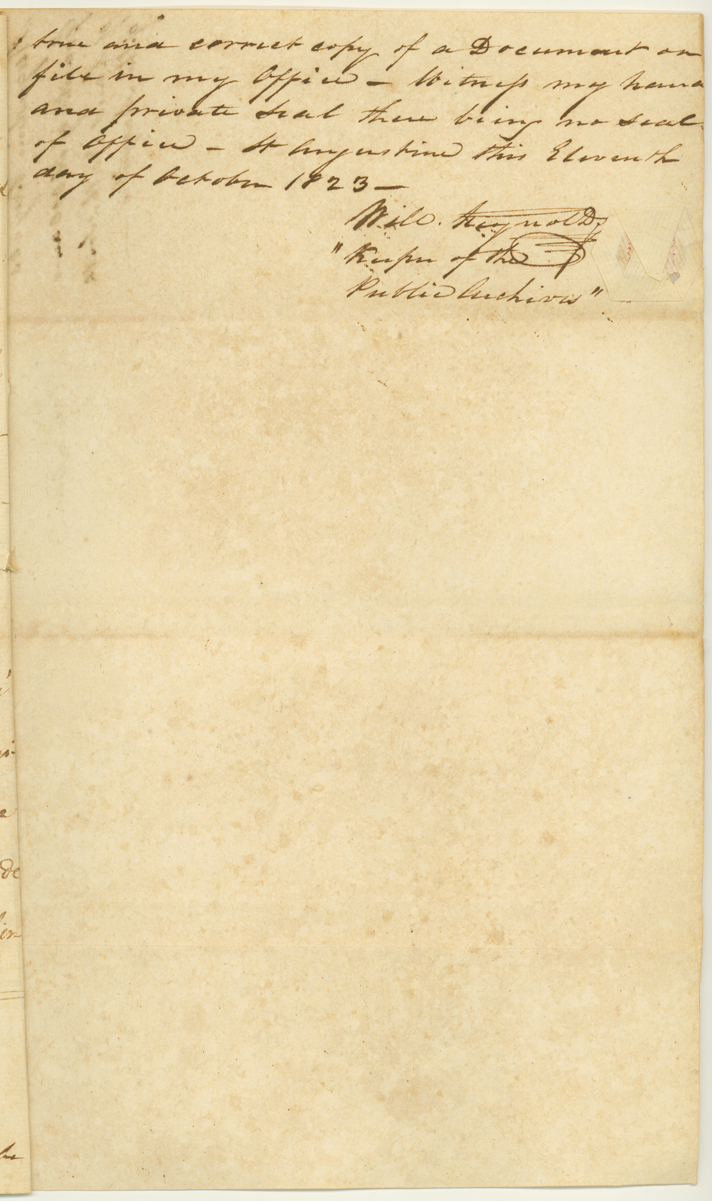 true and correct copy of a Document on
file in my Office — Witness my hand
and private seal there being no seal
of Office — St Augustine this Eleventh
day of October 1823 —
Will. Reynolds
"Keeper of the
Public Archives"
de